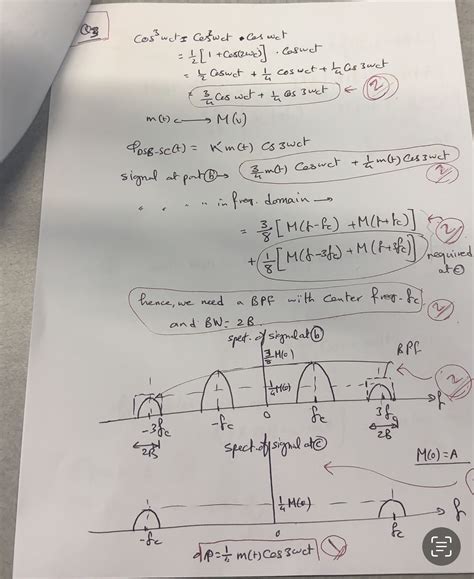 Q3
Cos³wct = Cos²wct • Cos wct
= 1/2 [1 + Cos(2wc)] · Cos wct
= 1/2 Cos wct + 1/4 Cos wct + 1/4 Cos 3wct
= 3/4 Cos wct + 1/4 Cos 3wct ← 2
m(t) ⟶ M(v)
φDSB-SC(t) = K m(t) Cos 3wct
signal at port (b) → 3/4 m(t) Cos wct + 1/4 m(t) Cos 3wct 2
" " " " in freq. domain →
= 3/8 [M(f-fc) + M(f+fc)] 2
+ 1/8 [M(f-3fc) + M(f+3fc)] required at (c)
hence, we need a BPF with center freq. fc 2
and BW = 2B
spect. of signal at (b)
3/8 M(0) BPF
1/4 M(0) 2
-3fc -fc 0 fc 3fc f
2B 2B
spect. of signal at (c) M(0) = A
1/4 M(0)
-fc 0 fc f
φ = 1/4 m(t) Cos 3wct 1